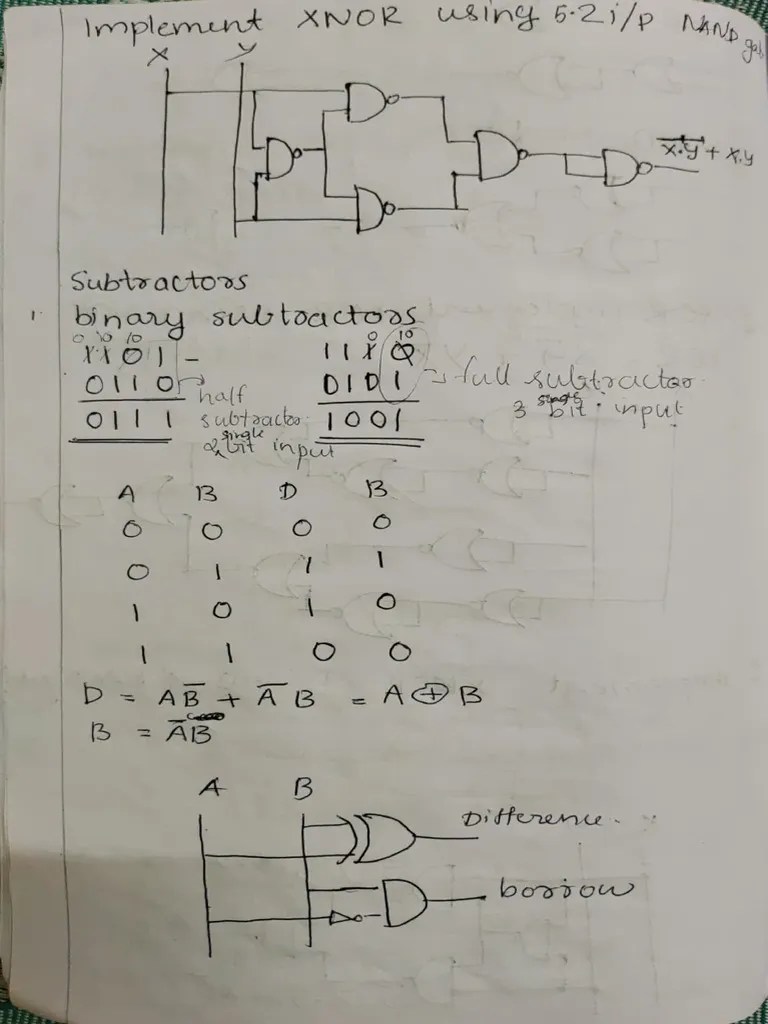 Implement XNOR using 5.2 i/p NAND
X Y
x̅.y̅ + x.y
Subtractors
1. binary subtractors
0 10 10
1101 -
0110 → half
0111 subtractor
2 single bit input
0 10
1110
0101 → full subtractor
1001 3 single bit input
A B D B
0 0 0 0
0 1 1 1
1 0 1 0
1 1 0 0
D = AB̅ + A̅B = A ⊕ B
B = A̅B
A B
Difference.
borrow